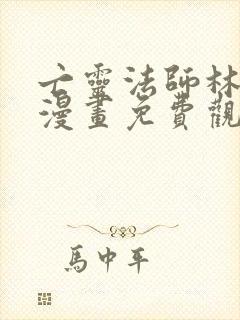 亡靈法師林
漫畫免費觀
馬中平